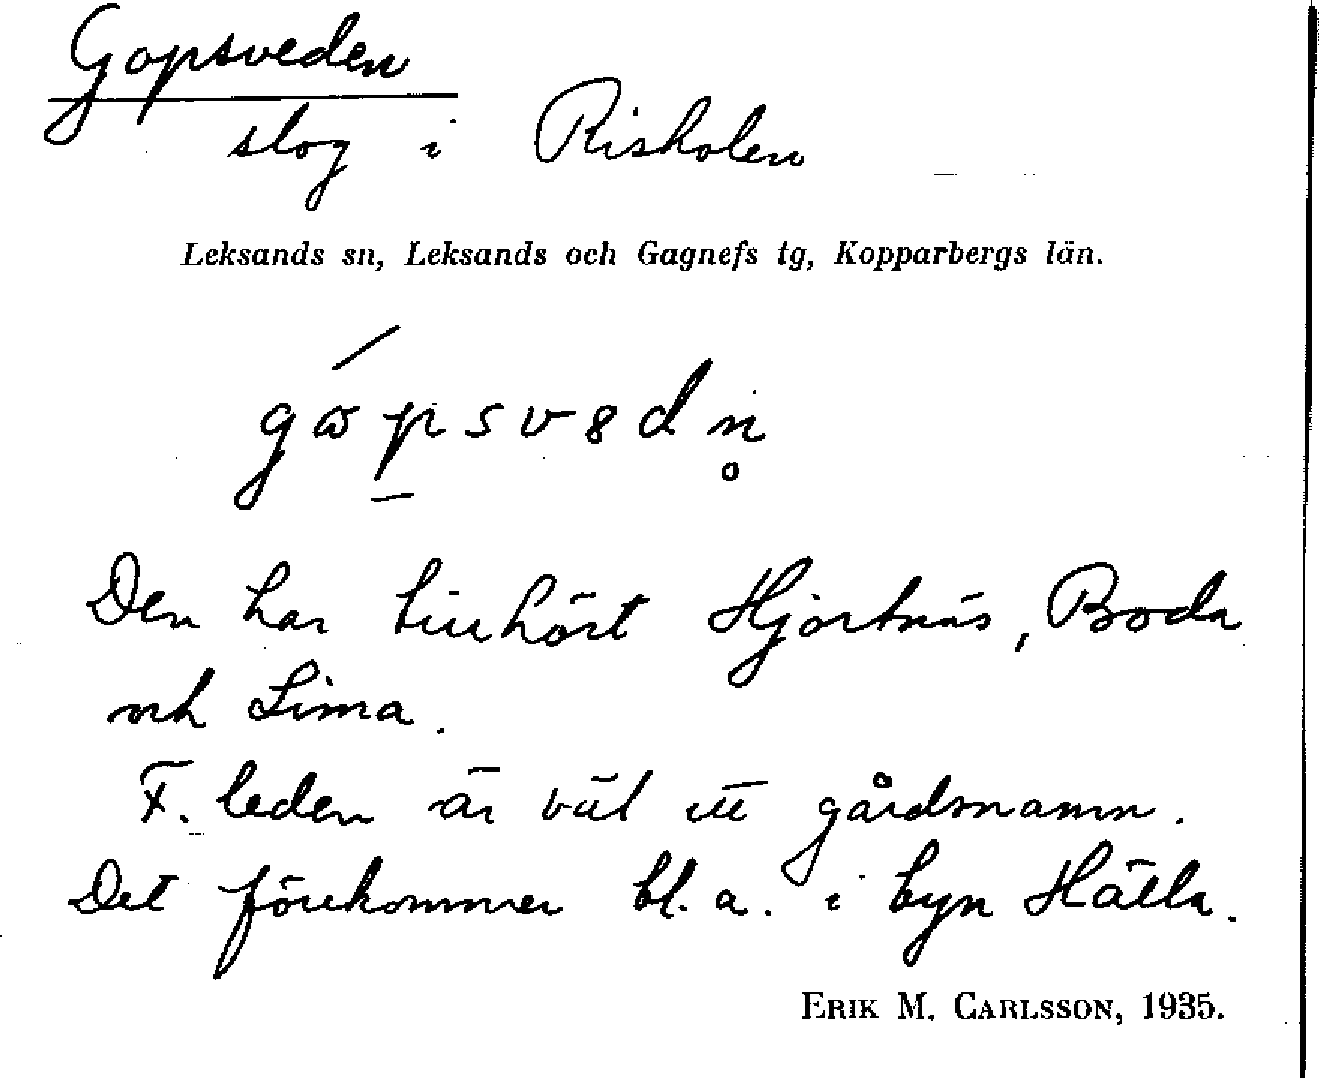 Gopsveden
slog i Risholen
Leksands sn, Leksands och Gagnefs tg, Kopparbergs län.
Den har tillhört Hjortnäs, Boda
och Lima.
F. leden är väl ett gårdsnamn.
Det förekommer bl. a. i byn Hälla.
ERIK M. CARLSSON, 1935.